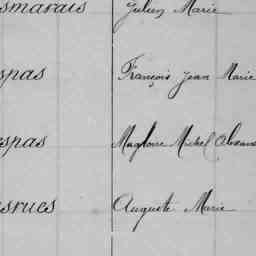 smarais Julien Marie
spas François Jean Marie
spas Magloire Michel
srues Auguste Marie